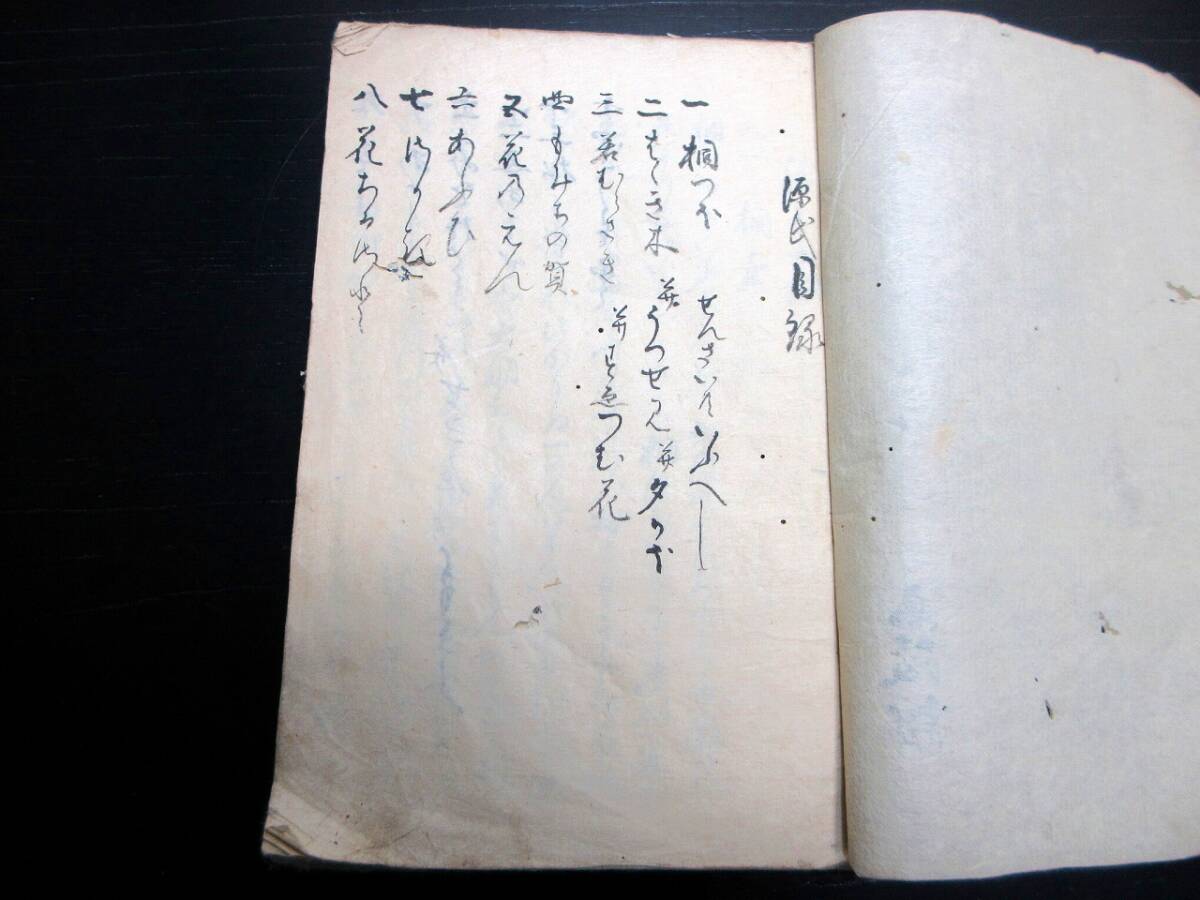 源氏目録
一 桐つほ せんさいともいふへし
二 はゝき木 并うつせみ 并夕かほ
三 若むらさき 并すゑつむ花
四 もみちの賀
五 花のえん
六 あふひ
七 さか木
八 花ちるさと